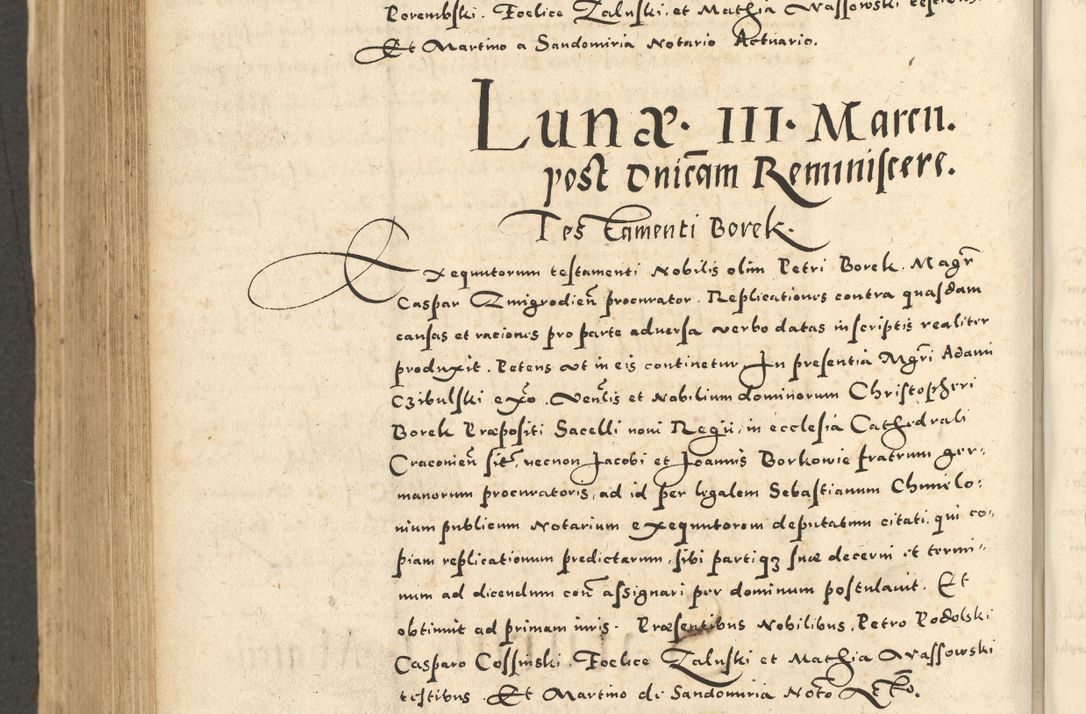 Porembski. Foelice Zaluski, et Mathia Wassowski
Et Martino a Sandomiria Notario Actuario.
Lunæ. III. Marcii.
post Dnicam Reminiscere.
Testamenti Borek.
Exequutorum testamenti Nobilis olim Petri Borek. Magr
Caspar Zmigrodien procurator. Replicationes contra quasdam
causas et raciones pro parte adversa verbo datas in scriptis realiter
produxit. Petens ut in eis continetur. In presentia Mgri Adami
Czibulski exo. Venlis et Nobilium dominorum Christopheri
Borek Præpositi Sacelli noui Regii, in ecclesia Cathedrali
Craconien sit, necnon Jacobi et Joannis Borkowie fratrum ger-
manorum procuratoris, ad id per legalem Sebastianum Chmielo-
nium publicum Notarium exequutorem deputatum citati, qui co-
piam replicationum predictarum, sibi partiq3 suæ decerni et termi-
num ad dicendum con assignari per dominum postulauit. Et
obtinuit ad primam iuris. Præsentibus Nobilibus, Petro Podolski
Casparo Cossinski. Foelice Zaluski et Mathia Wassowski
testibus. Et Martino de Sandomiria Noto